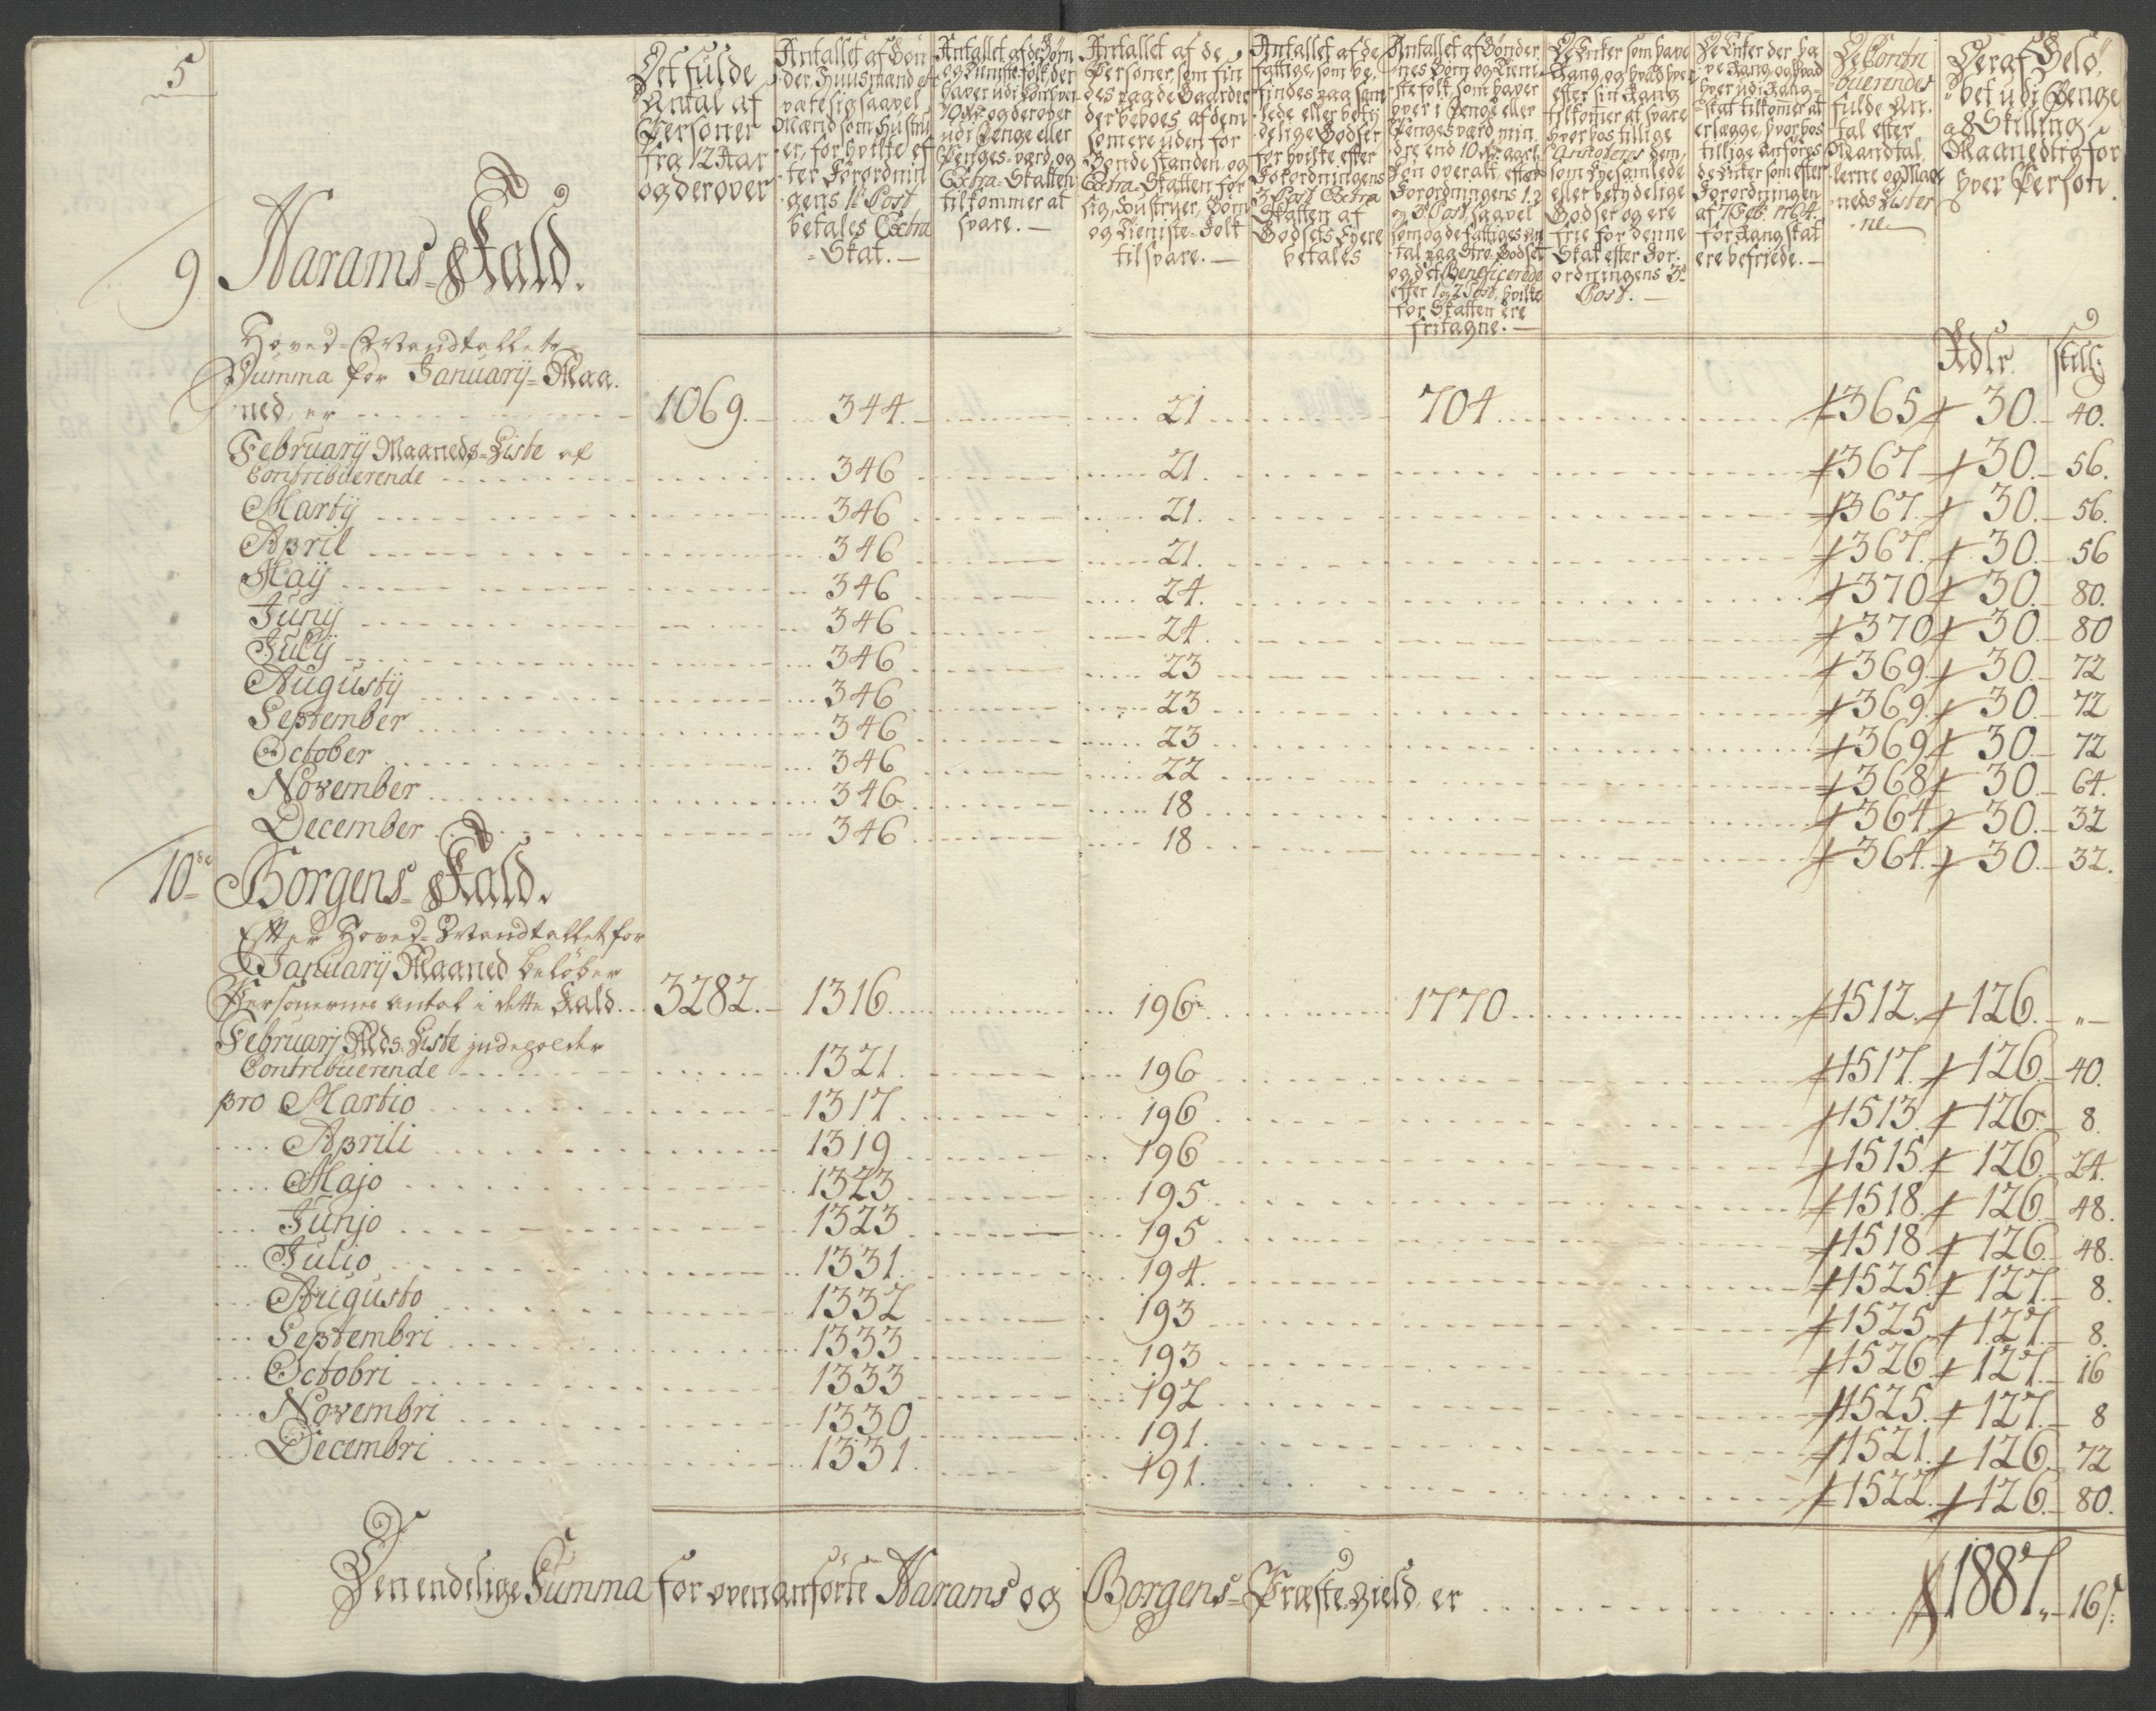 5
Det fulde
Antal af
Personer
fra 12 Aar
og derover
Antallet af Bøn
der Huusmænd et
være sig saavel
Mænd som Hustru
er, for hvilke ef
ter Forordnin
gens 1te Post
betales Extra
Skat.
Antallet af de Børn
og Tieniste-folk, der
haver udi Løn hver
10 rdr og derover
udi Penge eller
Penges-værd, og
Extra-Skatten
tilkommer at
svare.
Antallet af de
Personer, som fin
des paa de Gaarder
der beboes af dem
som ere uden for
Bondestanden, og
Extra-Skatten for
sig, Houstruer, Børn
og Tieniste-Folk
til svare.
Antallet af de
fattige, som be
findes paa sam
lede eller bety
delige Godser,
for hvilke efter
Forordningens
3 Post Extra
Skatten af
Godsets Eyere
betales
Antallet af Bønder
nes Børn og Tieni
ste folk, som haver
hver i Penge eller
Penges værd min
dre end 10 rdr aarl.
Løn overalt, efter
Forordningens 1. 2
og 3 Post, saavel
som og de fattiges An
tal paa Strø-Godset
og det Beneficerede
efter 1 og 2 Post, hvilke
for Skatten ere
fritagne.
De Enker som have
Rang, og hvad hver
efter sin Rang
tilkommer at svare
hvor hos tillige
dem,
som Eye samlede
eller betydelige
Godser og ere
frie for denne
Skat efter For
ordningens 3de
Post.
De Enker der ha
ve Rang, og hvad
hver udi Rang-
skat tilkommer at
erlægge, hvor hos
tillige anføres
de Enker som efter
Forordningen
af 7 Feb. 1764.
for Rang skat
ere befriede.
De Contri
buerendes
fulde An
tal efter
Mandtal
lerne og Maa
neds Lister
ne
Deraf Belø
bet udi Penge
a 8 Skilling
Maanedlig for
hver Person.
9 Harams-Kald.
Rdlr. skill:
Hoved-Mandtallets
Summa for Januarij-Maa
ned, er 1069. 344. 21 704. 365 30. 40.
Februarij Maaneds-Liste af
Contribuerende 346 21. 367 30. 56.
Martij 346 21. 367. 30. 56.
April 346 21. 367. 30. 56
Maij 346 24. 370 30. 80.
Junij 346 24. 370 30. 80
Julij 346 23 369. 30. 72
Augustij 346 23 369. 30. 72
September 346 23 369 30. 72
October 346 22 368 30. 64.
November 346 18 364. 30. 32
December 346 18 364. 30. 32.
10de Borgens-Kald.
Efter Hoved-Mandtallet for
Januarij Maaned beløber
Personernes antal i dette Kald 3282. 1316 196 1770 1512. 126. "
Februarj Mds. Liste indeholder
Contribuerende 1321. 196 1517. 126. 40.
pro Martio 1317. 196 1513. 126. 8.
Aprili 1319 196 1515. 126. 24.
Majo 1323 195 1518. 126. 48.
Junjo 1323 195 1518 126. 48.
Julio 1331. 194. 1525. 127. 8.
Augusto 1332 193 1525 127. 8.
Septembri 1333 193 1526 127. 16
Octobri 1333 192 1525. 127. 8
Novembri 1330 191. 1521. 126. 72
Decembri 1331. 191. 1522. 126. 80.
Den endelige Summa for ovenanförte Harams og Borgens-Præste-gield, er 1887. 16 s: